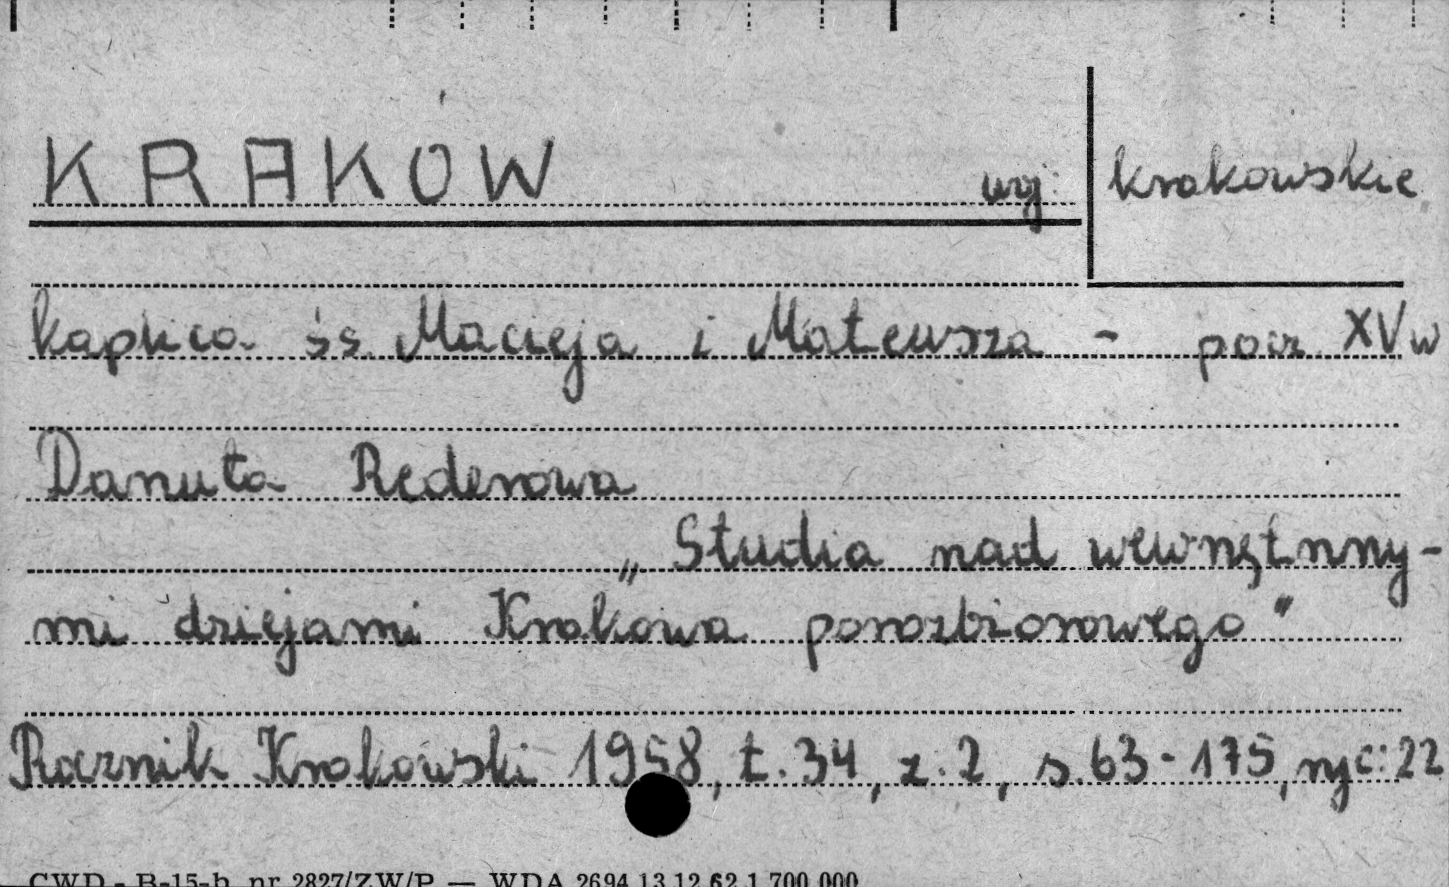 KRAKÓW woj: krakowskie
kaplica śś. Macieja i Mateusza - pocz. XV w
Danuta Rederowa
„Studia nad wewnętrzny-
mi dziejami Krakowa porozbiorowego"
Rocznik Krakowski 1958, t. 34, z. 2, s. 63-175, ryc: 22
CWD - B-15-b, nr 2827/ZW/P — WDA 2694 13.12.62 1.700.000